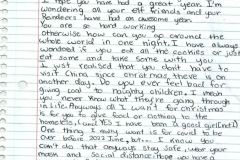 I hope you have had a great year. I'm
wondering on your elf friends and your
Reindeers have had an awesome year.
You are so hard working
otherwise how can you go around the
whole world in one night. I have always
wondered is you eat all the cookies or just
eat some and take some with you.
I just realised that you don't have to
visit China since christmas there is on
another day. Do you ever feel bad for
giving coal to naughty children, I mean
you never know what they're going through
in life. Anyways all I want for christmas
is for you to give food or clothing to the
homeless, (and I've been a good girl
One thing I really want is for covid to be
over before 2021 time, but I know you
can't do that anyways stay safe, wear your
mask and social distance. Hope you have a